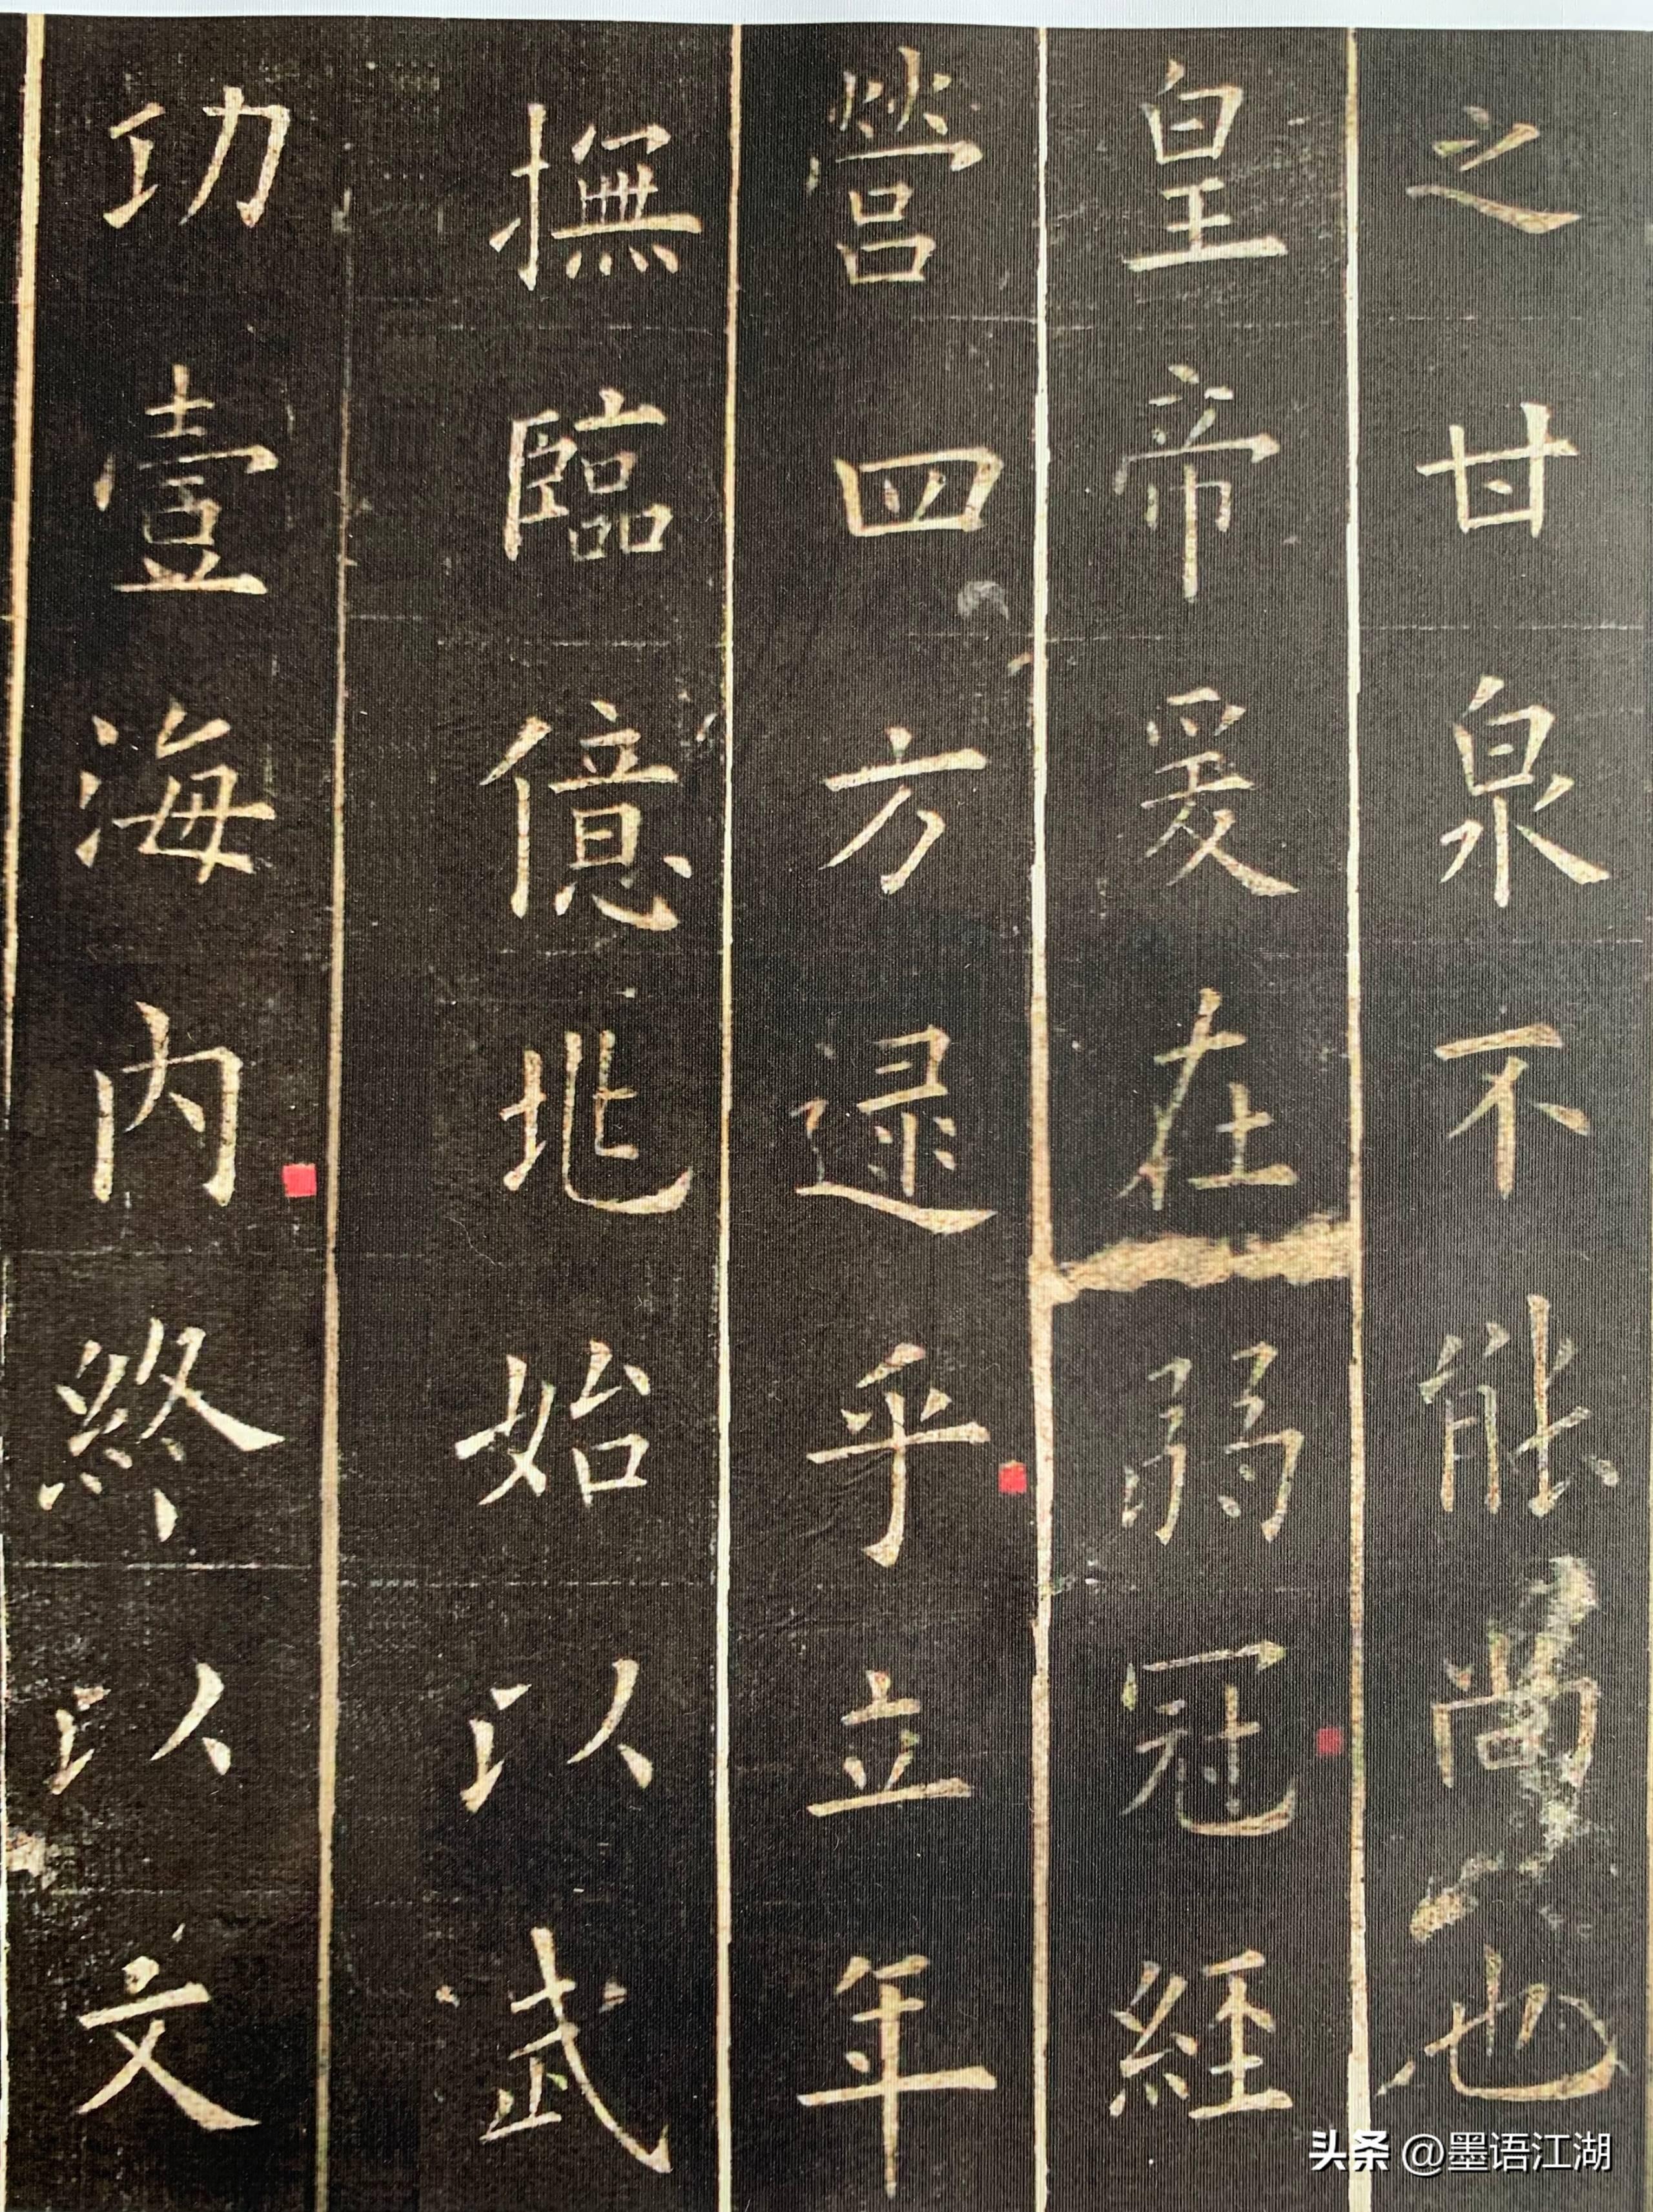 之甘泉不能尚也
皇帝爰在弱冠經
營四方逯乎立年
撫臨億兆始以武
功壹海内終以文
头条 @墨语江湖